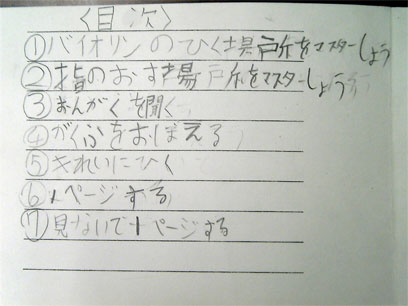 〈目次〉
①バイオリンのひく場所をマスターしよう
②指のおす場所をマスターしよう
③おんがくを聞く
④がくふをおぼえる
⑤きれいにひく
⑥1ページする
⑦見ないで1ページする